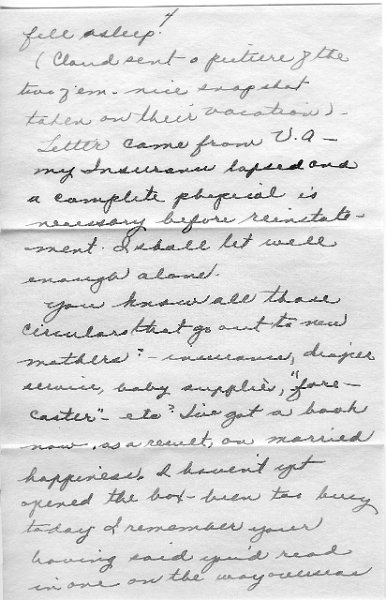 4
fell asleep.
(Claud sent a picture of the
two of 'em - nice snapshot
taken on their vacation).
Letter came from V.A -
my Insurance lapsed and
a complete physical is
necessary before reinstate-
ment. I shall let well
enough alone.
You know all those
circulars that go out to new
mothers? - insurance, diaper
service, baby supplies, "fore-
caster" - etc? I've got a book
now, as a result, on married
happiness. I haven't yet
opened the box - been too busy
today. I remember your
having said you'd read
in one on the way overseas